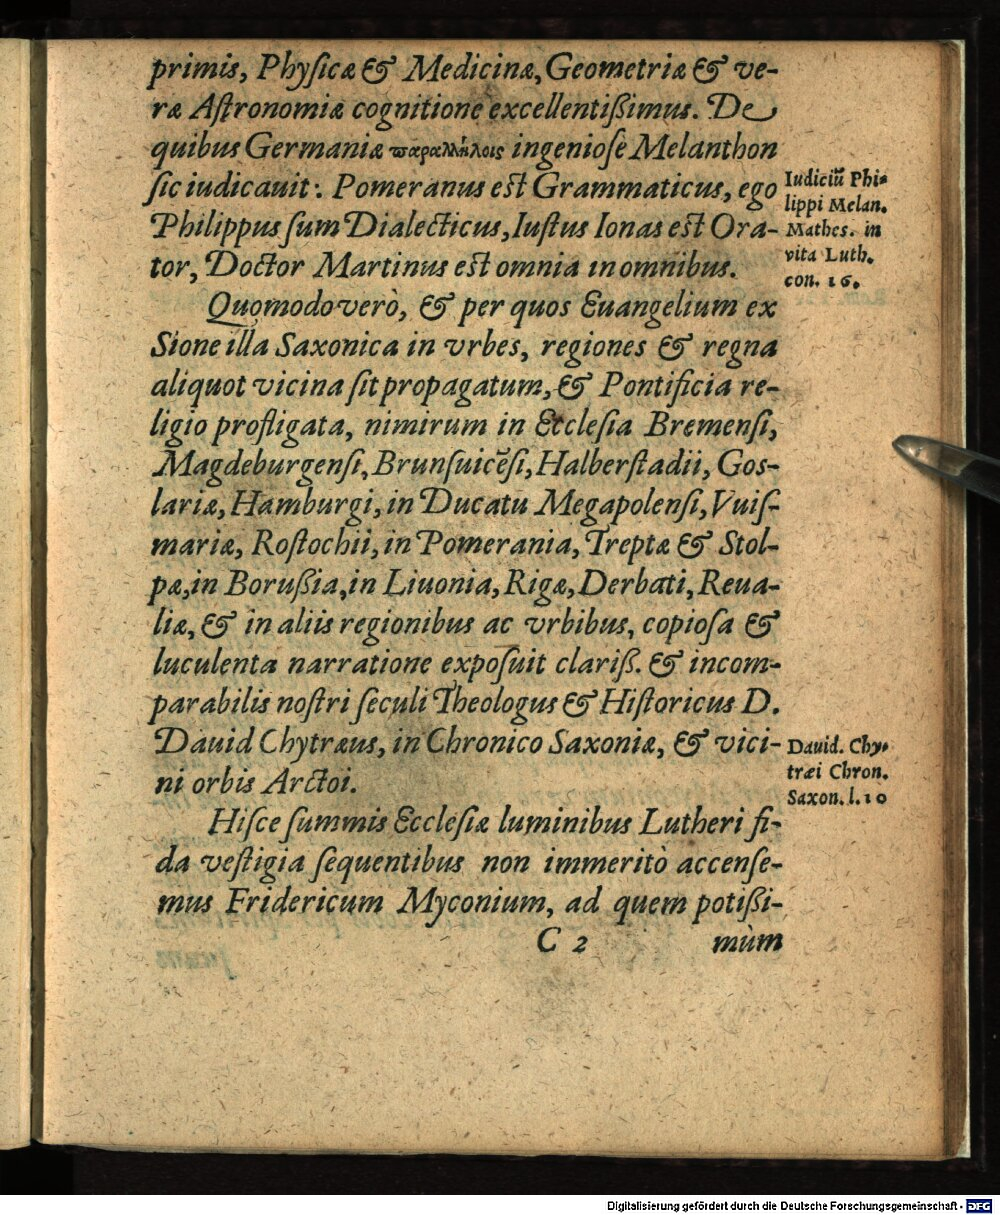 primis, Physicæ & Medicinæ, Geometriæ & ve-
ræ Astronomiæ cognitione excellentißimus. De
quibus Germaniæ παραλλήλοις ingeniosè Melanthon
sic iudicauit: Pomeranus est Grammaticus, ego
Philippus sum Dialecticus, Iustus Ionas est Ora-
tor, Doctor Martinus est omnia in omnibus.
Iudiciũ Phi-
lippi Melan.
Mathes. in
vita Luth.
con. 16.
Quomodo verò, & per quos Euangelium ex
Sione illa Saxonica in vrbes, regiones & regna
aliquot vicina sit propagatum, & Pontificia re-
ligio profligata, nimirum in Ecclesia Bremensi,
Magdeburgensi, Brunsuicẽsi, Halberstadii, Gos-
lariæ, Hamburgi, in Ducatu Megapolensi, Vuis-
mariæ, Rostochii, in Pomerania, Treptæ & Stol-
pæ, in Borußia, in Liuonia, Rigæ, Derbati, Reua-
liæ, & in aliis regionibus ac vrbibus, copiosa &
luculenta narratione exposuit clariß. & incom-
parabilis nostri seculi Theologus & Historicus D.
Dauid Chytræus, in Chronico Saxoniæ, & vici-
ni orbis Arctoi.
Dauid. Chy-
træi Chron.
Saxon. l. 10
Hisce summis Ecclesiæ luminibus Lutheri fi-
da vestigia sequentibus non immeritò accense-
mus Fridericum Myconium, ad quem potißi-
C 2 mùm
Digitalisierung gefördert durch die Deutsche Forschungsgemeinschaft - DFG